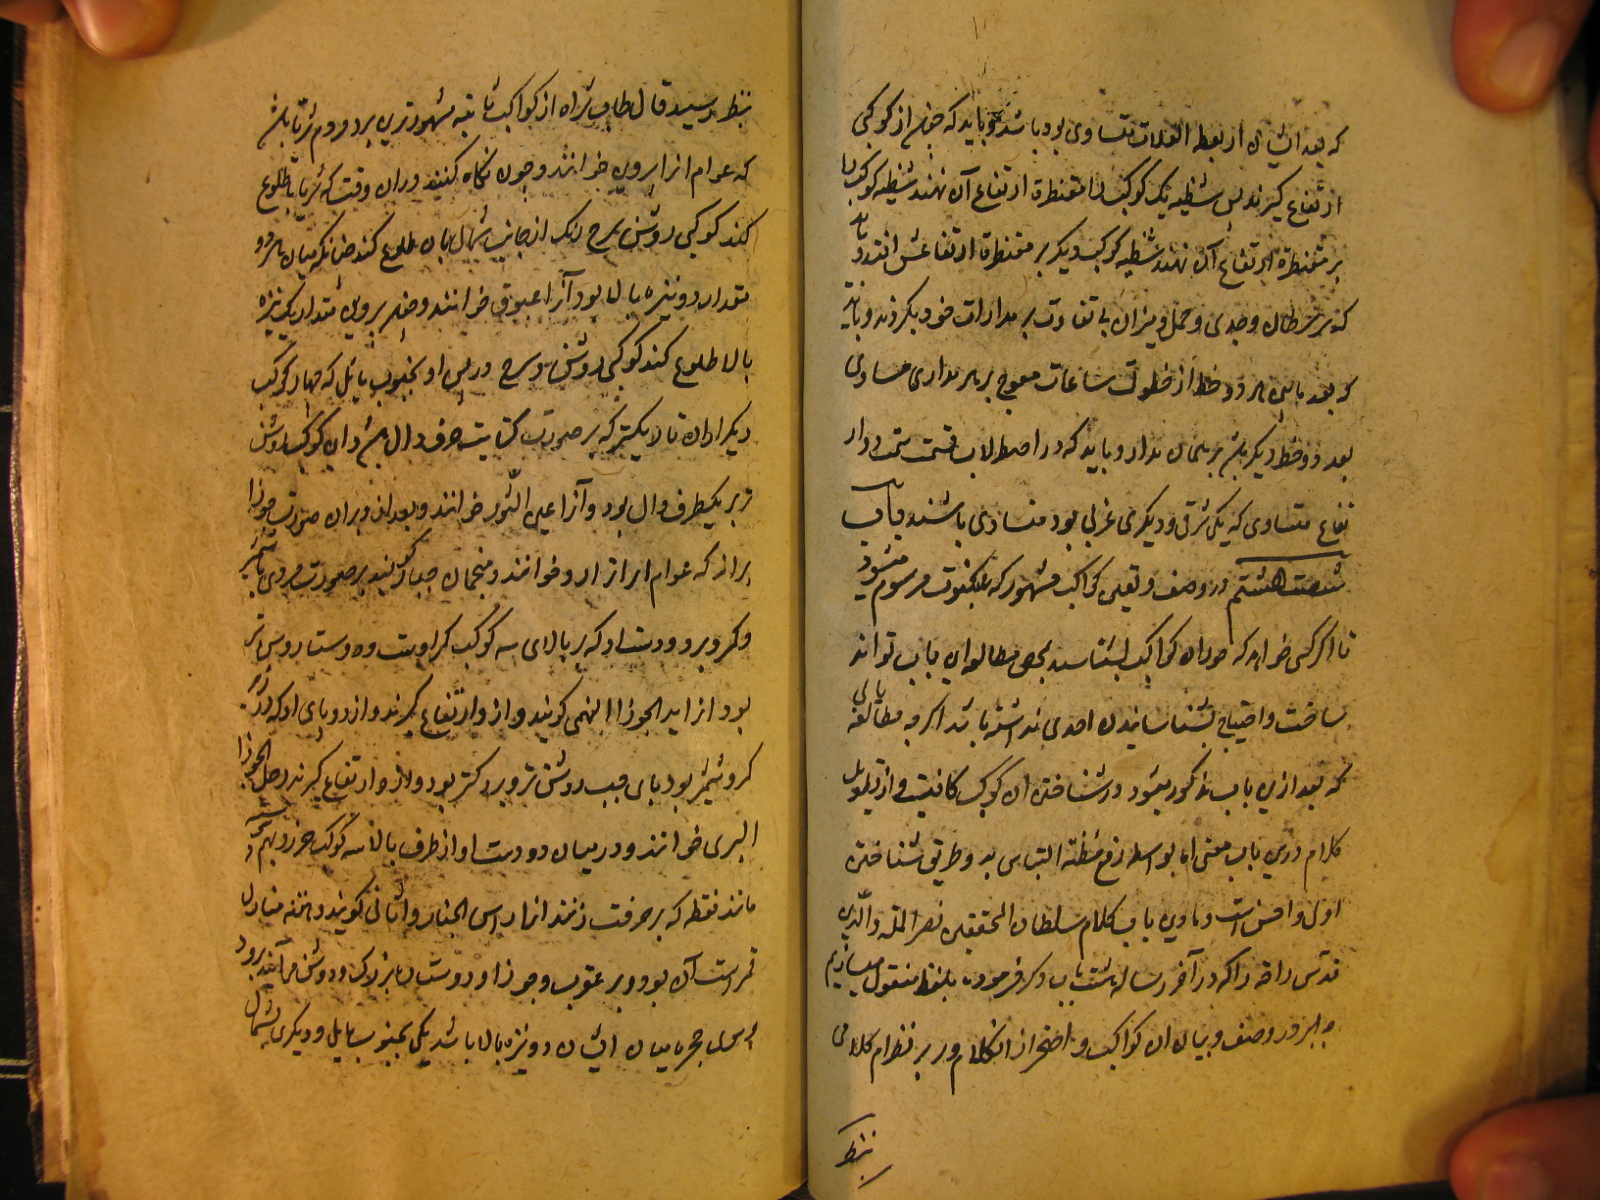 که بعد ایشان از نقطه اعتدلات متساوی بود باشد و باید که چون از کوکبی
ارتفاع گیرند پس شظیه یک کوکب را بر مقنطره ارتفاع آن نهند شظیه کوکب را
بر مقنطره ارتفاع آن نهند شظیه کوکب دیگر بر مقنطره ارتفاعش افتد و باید
که سر سرطان و جدی و حمل و میزان بی تفاوت بر مدارات خود بگردند و باید
که بعد مابین هر دو خط از خطوط ساعات معوج بر هر مداری مساوی
بعد دو خط دیگر باشد بر همان مدار و باید که در اصطرلاب قسمت سمت دو ار
تفاع متساوی که یکی شرقی و دیگری غربی بود متساوی باشند باب
شصت هشتم در وصف و تعیین کواکب مشهور که بر عنکبوت مرسوم میشود
تا اگر کسی خواهد که صور آن کواکب بشناسد بمحض مطالعه این باب تواند
ساخت و احتیاج بشناسانیدن احدی نداشته باشد اگر چه مطالعه بابی
که بعد ازین باب مذکور میشود در شناختن آن کوکب کافیست و از تطویل
کلام درین باب مغنی اما بواسطه رفع مظنه التباس بد و طریق شناختن
اولی و احسن است و مادرین باب کلام سلطان المحققین نصیر المله والدین
قدس رافه را که در آخر رساله بیست باب ذکر فرموده بلفظ منقول میسازیم
چه در وصف و بیان آن کواکب واضحتر از آن کلام و پر نظام کلامی
بنظر
بنظر نرسید قال طاب ثراه از کواکب ثابته مشهورترین پروین ثریا باشد
که عوام آنرا پروین خوانند و چون نگاه کنند در آن وقت که ثریا طلوع
کند کوکبی روشن سرخ رنگ از جانب شمال با آن طلوع کند چنانکه میان هر دو
مقدار دو نیزه بالا بود آنرا عیوق خوانند و چون پروین مقدار یک نیزه
بالا طلوع کند کوکبی روشن و سرخ در پس او بجنوب مایل که چهار کوکب
دیگر از آن تاریکتر که بر صورت کتابت حرف دال باشد و این کوکب روشن
تر بر یکطرف دال بود و آنرا عین الثور خوانند و بعد از و بر آن صورت جوزا
براید که عوام آنرا ترازو خوانند و منجمان جبار گویند بر صورت مردی با شمشیر
و کمر و بر دو دست او که بر بالای سه کوکب کمر اوست و دست روشن تر
بود آنرا ید الجوزا الیمنی گویند و از و ارتفاع گیرند و از دو پای او که در زیر
کمر و شمشیر بود پای چپ روشن تر و بزرکتر بود و از و ارتفاع گیرند رجل الجوزا
الیسری خوانند و در میان دو دست او از طرف بالا سه کوکب خرد بهم بسته
مانند نقطه که بر حرفت زنند آنرا راس الجبار و اثافی گویند و هقعه منازل
قمر است آن بود و بر عقب و جوزا دو ستاره بزرک و روشن بر آیند برود
بسوی مجره میان ایشان دو نیزه بالا باشد یکی بجنوب مایل و دیگری بشمال